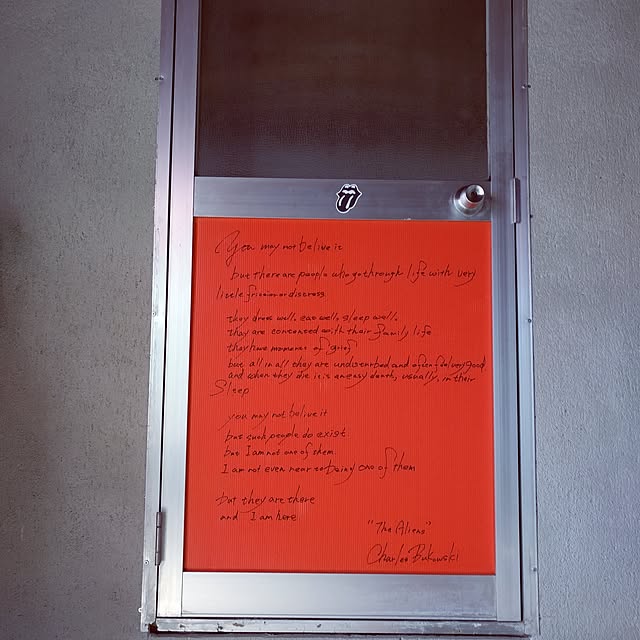 You may not belive it
but there are people who go through life with very
little friction or distress.
they dress well, eat well, sleep well.
they are contented with their family life
they have moments of grief
but all in all they are undisturbed and often feel very good
and when they die it is an easy death, usually, in their
Sleep
you may not belive it
but such people do exist.
but I am not one of them
I am not even near to being one of them
but they are there
and I am here
"The Aliens"
Charles Bukowski